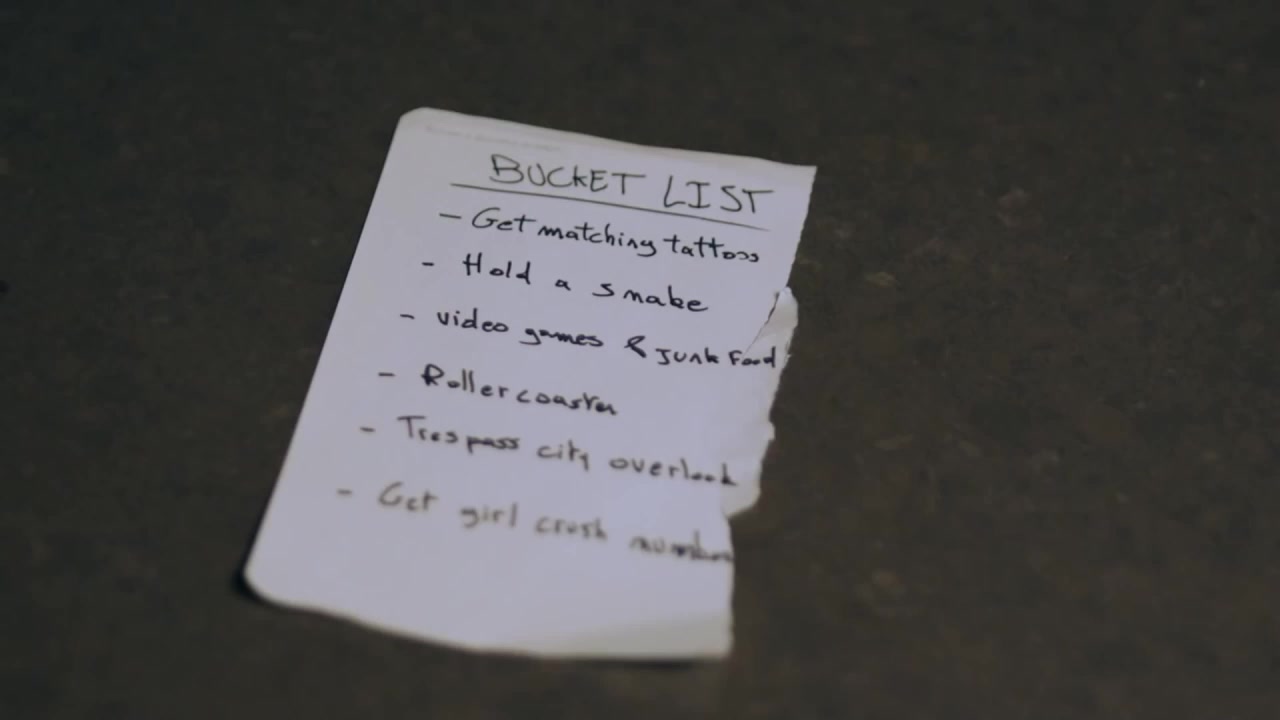 BUCKET LIST
- Get matching tattoos
- Hold a snake
- video games & Junk Food
- Rollercoaster
- Trespass city overlook
- Get girl crush number